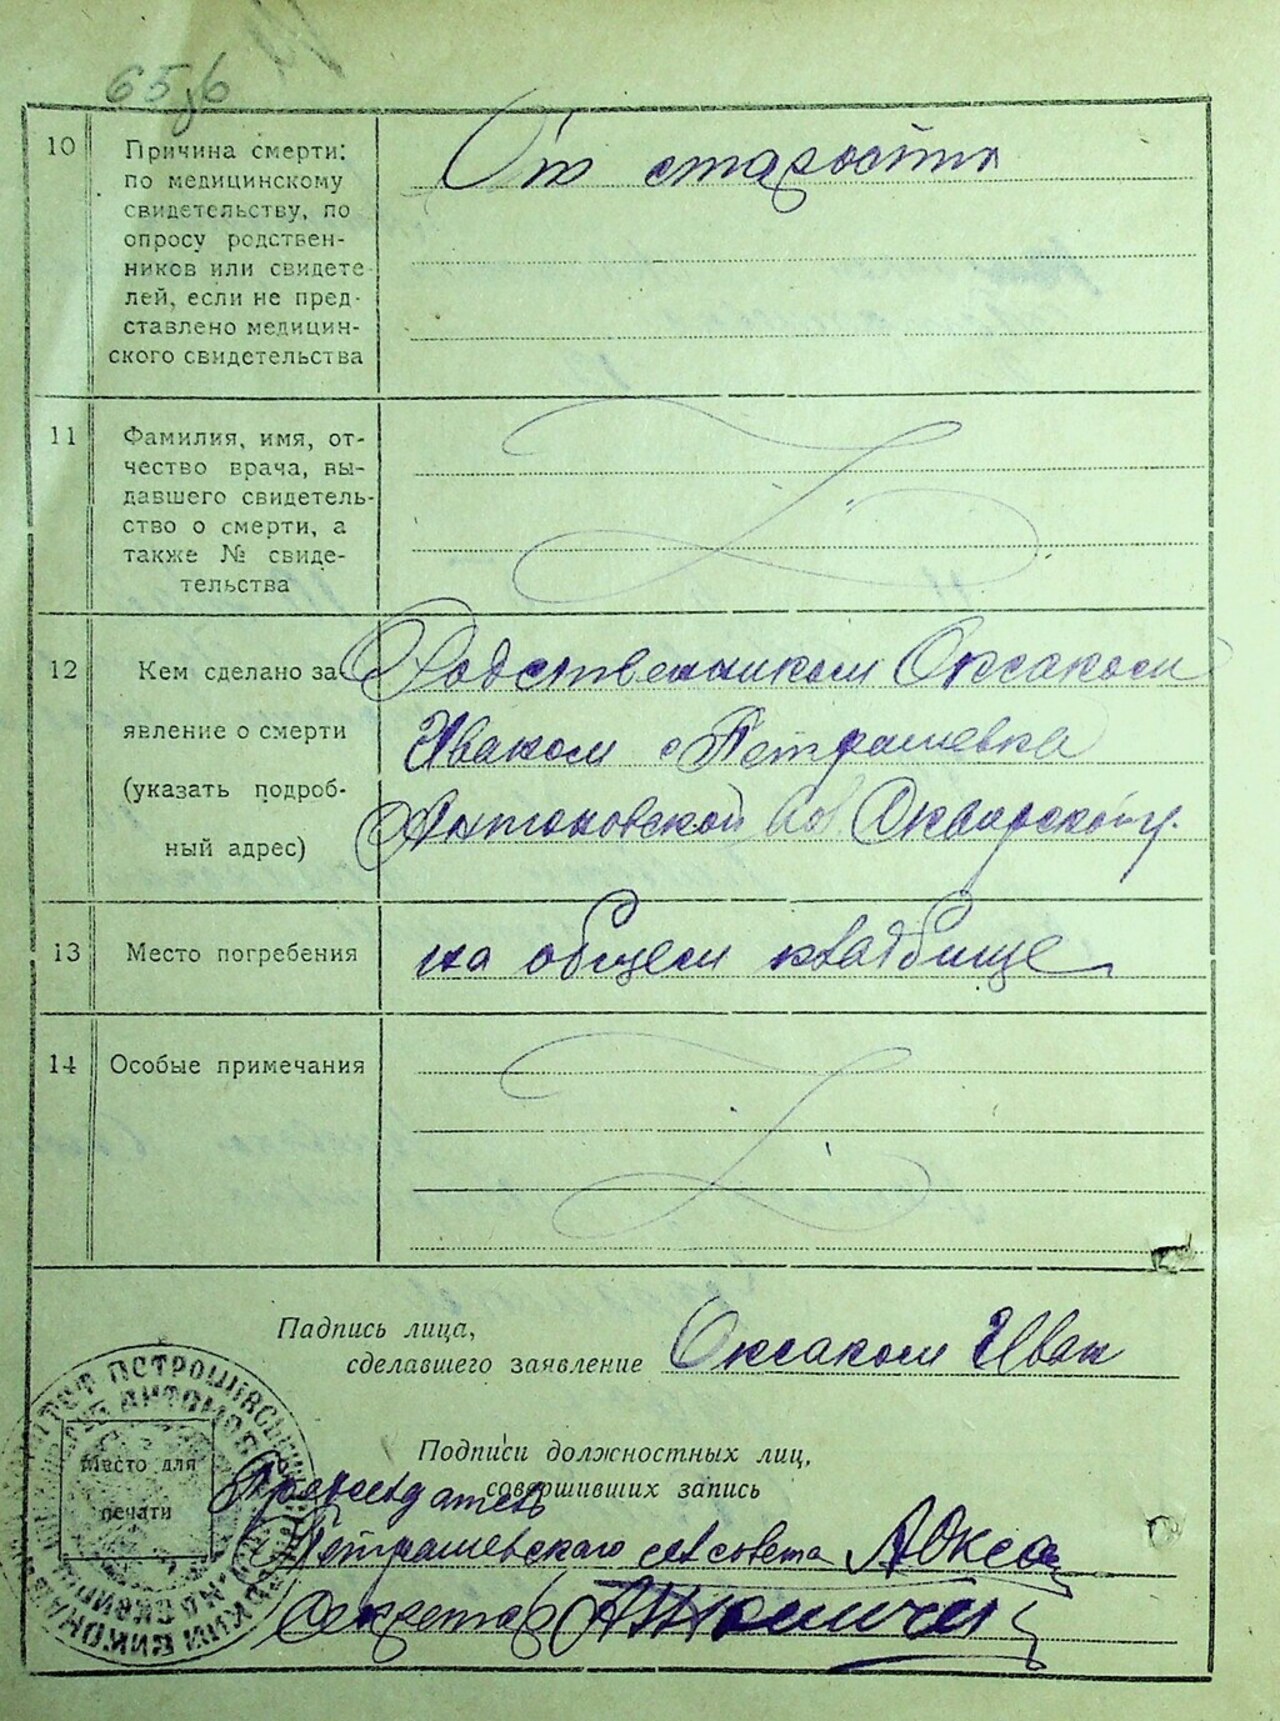 65 об
10
Причина смерти:
по медицинскому
свидетельству, по
опросу родствен-
ников или свидете-
лей, если не пред-
ставлено медицин-
ского свидетельства
От старости
11
Фамилия, имя, от-
чество врача, вы-
давшего свидетель-
ство о смерти, а
также № свиде-
тельства
12
Кем сделано за-
явление о смерти
(указать подроб-
ный адрес)
Родственником Оксаком
Иваном с Петрашевка
Антоновской Сквирской
13
Место погребения
на общем кладбище
14
Особые примечания
Падпись лица,
сделавшего заявление
Оксаком Иван
Подписи должностных лиц,
совершивших запись
Место для
печати
Председатель
Петрашевского сельсовета
Секретарь